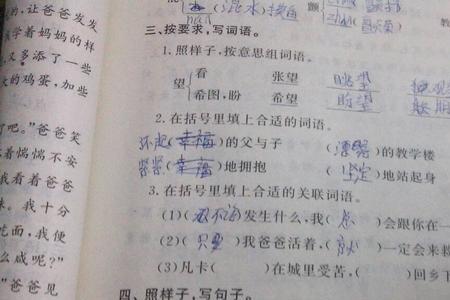 的，让爸爸发发
学着妈妈的样
又多添了一些
大的鸡蛋，加些
了吧。"爸爸笑
着惴惴不安
我看着爸爸
味。我十分
吃面，我便
么咸呢？"
"爸爸见
(混水)
三、按要求，写词语。
1. 照样子，按意思组词语。
望 看 张望 眺望
希图，盼 希望 盼望
2. 在括号里填上合适的词语。
(幸福)的父与子 (漂亮)的教学楼
紧紧(幸福)地拥抱 (坚定)地站起身
3. 在括号里填上合适的关联词语。
(1)(不论)发生什么，我(总)会跟你在一
(2)(只要)我爸爸活着，( )一定会来
(3)凡卡( )在城里受苦，( )回乡下
四、照样子，写句子。